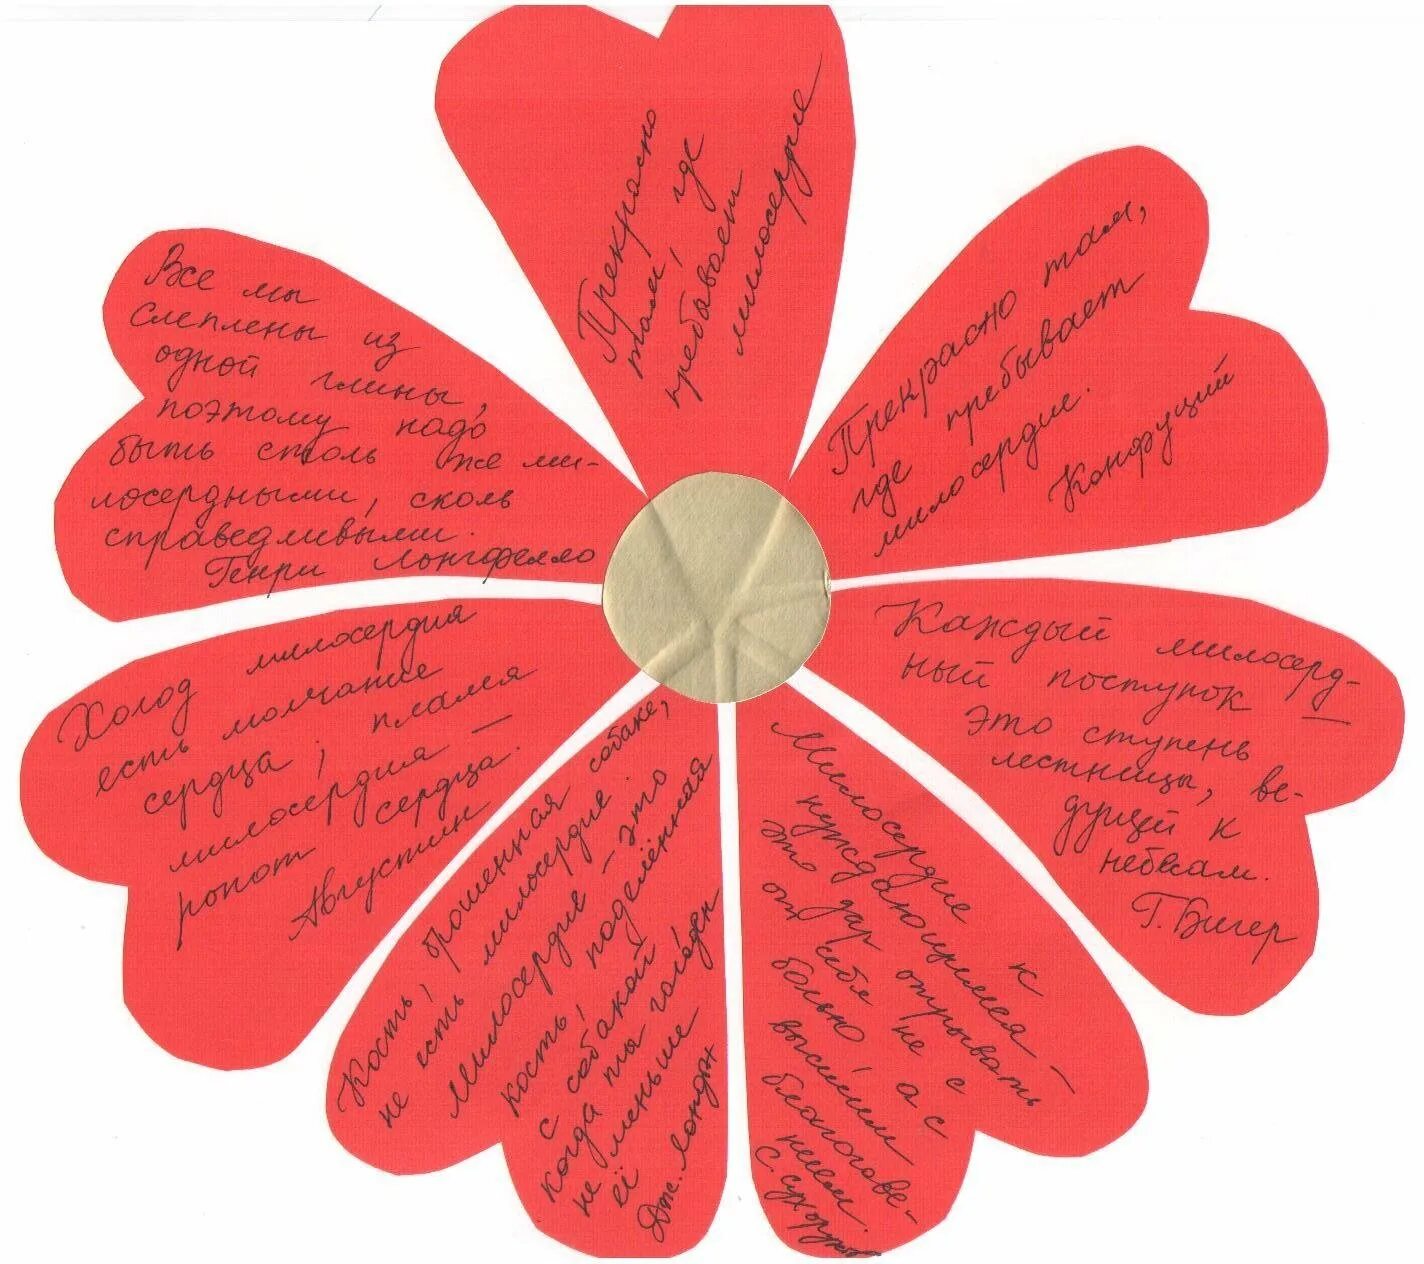 Прекрасно
там, где
пребывает
милосердие
Прекрасно там,
где пребывает
милосердие.
Конфуций
Каждый милосерд-
ный поступок —
это ступень
лестницы, ве-
дущей к
небесам.
Г. Бичер
Милосердие к
нуждающимся —
это дар отрывать
от себя не с
болью, а с
высшим
благогове-
нием.
С. Сухоруков
Кость, брошенная собаке,
не есть милосердие.
Милосердие — это
кость, поделённая
с собакой,
когда ты голоден
не меньше
её
Дж. Лондон
Холод милосердия
есть молчание
сердца; пламя
милосердия —
ропот сердца.
Августин
Все мы
слеплены из
одной глины,
поэтому надо
быть столь же ми-
лосердными, сколь
справедливыми.
Генри Лонгфелло